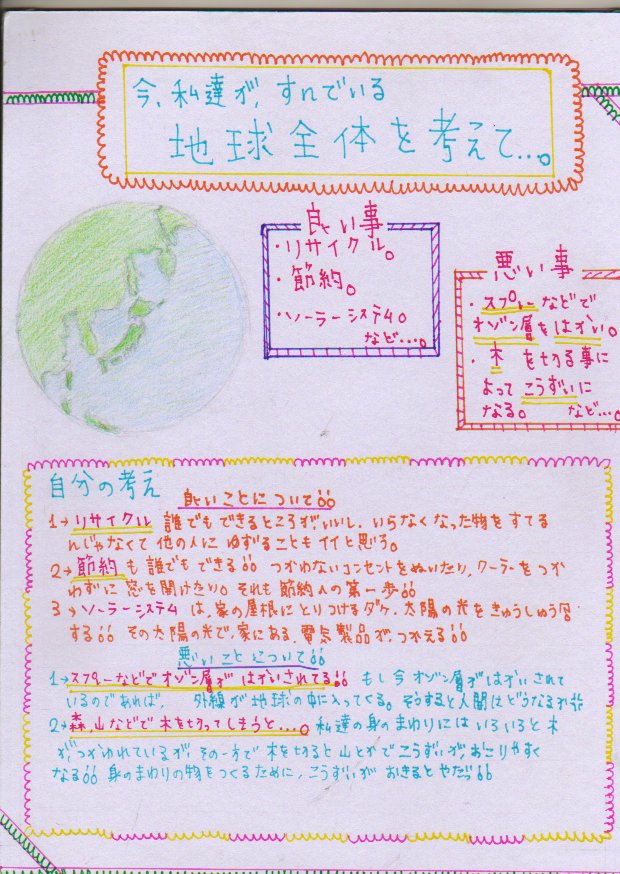 今、私達が、すんでいる
地球全体を考えて...。
良い事
・リサイクル。
・節約。
・ソーラーシステム。
など...。
悪い事
・スプレーなどで
オゾン層をはかい。
・木を切る事に
よってこうずいに
なる。 など...。
自分の考え
良いことについて!!
1→リサイクル 誰でもできるところがいいし、いらなくなった物をすてる
んじゃなくて他の人にゆずることもイイと思う。
2→節約も誰でもできる!! つかわないコンセントをぬいたり、クーラーをつか
わずに窓を開けたり。それも節約への第一歩!!
3→ソーラーシステムは、家の屋根にとりつけるダケ。太陽の光をきゅうしゅう
する!! その太陽の光で、家にある、電気製品が、つかえる!!
悪いことについて!!
1→スプレーなどでオゾン層がはかいされてる!! もし今オゾン層がはかいされて
いるのであれば、 外線が地球の中に入ってくる。そうすると人間はどうなるか
2→森、山などで木を切ってしまうと...。 私達の身のまわりにはいろいろと木
が、つかわれているが、その一方で木を切ると山とかでこうずいが、おこりやすく
なる!! 身のまわりの物をつくるために、こうずいがおきるとやだっ!!